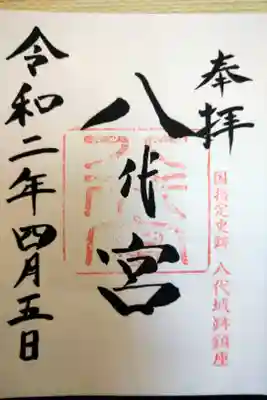 奉拝
国指定史跡 八代城跡鎮座
八代宮
令和二年四月五日